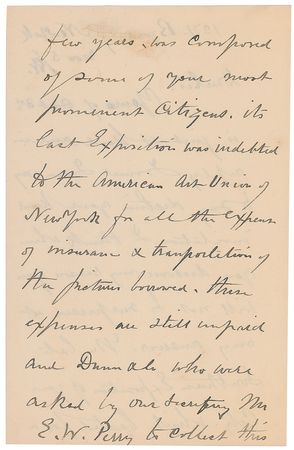 few years. was composed
of some of your most
prominent Citizens. its
last Exposition was indebted
to the American Art Union of
New York for all the expense
of insurance & tranportation of
the pictures borrowed. these
expenses are still unpaid
and who were
asked by our Secretary Mr
E. W. Perry to collect this